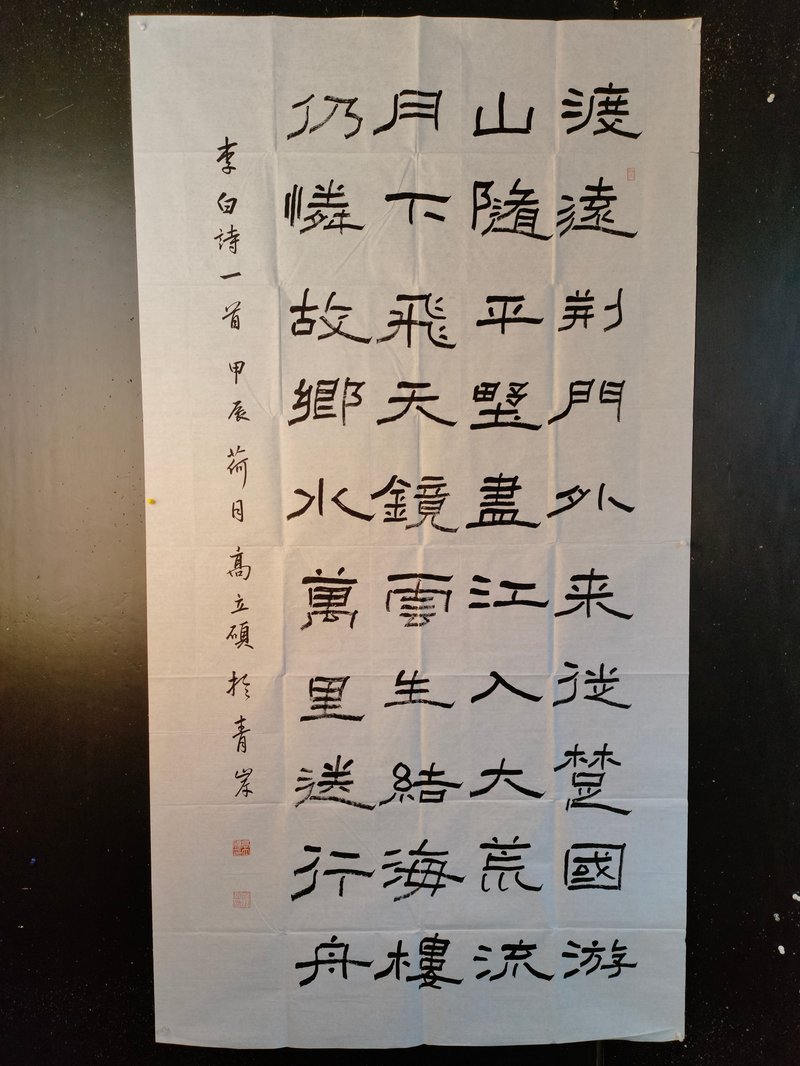 渡遠荆門外来從楚國游
山隨平墅盡江入大荒流
月下飛天鏡雲生結海樓
仍憐故鄉水萬里送行舟
李白詩一首甲辰荷月高立碩於青岸